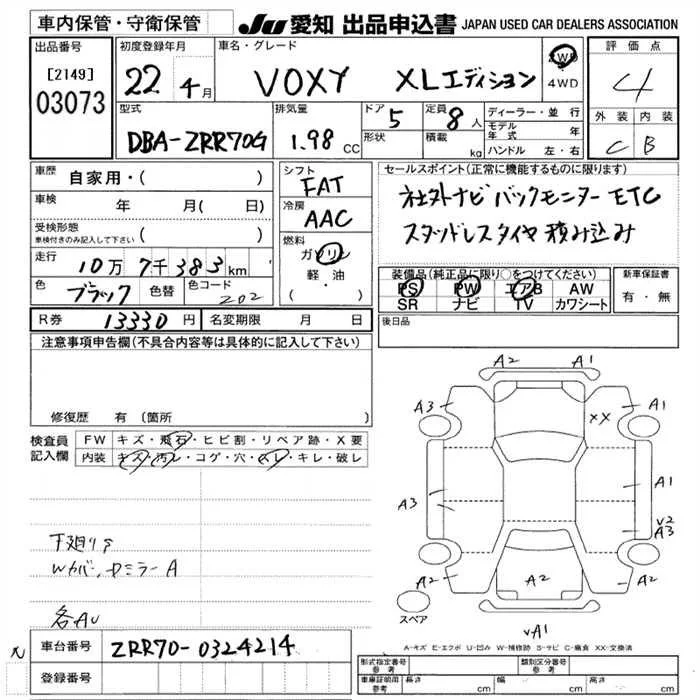 車内保管・守衛保管
JU 愛知 出品申込書 JAPAN USED CAR DEALERS ASSOCIATION
出品番号
[2149]
03073
初度登録年月
22年 4月
車名・グレード
VOXY XLエディション
2WD
4WD
評価点
4
外装 内装
C B
型式
DBA-ZRR70G
排気量
1.98 CC
ドア
5
形状
定員
8人
積載
kg
ディーラー・並行
モデル年式 年
ハンドル 左・右
車歴
自家用・( )
車検
年 月( 日)
受検形態
車検付きのみ記入して下さい ( )
走行
10万7千383km
色
ブラック
色替
色コード
202
シフト
FAT
冷房
AAC
燃料
ガソリン
軽・油
(・ )
セールスポイント(正常に機能するものに限ります)
社外ナビ バックモニター ETC
スタッドレスタイヤ積み込み
装備品(純正品に限り○をつけてください)
PS PW エアB AW
SR ナビ TV カワシート
新車保証書
有・無
R券 13330円
名変期限 月 日
後日品
注意事項申告欄(不具合内容等は具体的に記入して下さい)
修復歴 有(箇所 )
検査員記入欄
FW キズ・飛石・ヒビ割・リペア跡・X要
内装 キズ・汚レ・コゲ・穴・スレ・キレ・破レ
下廻りS
Wカバー、ドミラーA
各AU
A2 A1
A3 XX A1
A3 A1
V2
A3
A2 A2 A2
スペア
VA1
A-キズ E-エクボ U-凹み W-補修跡 S-サビ C-腐食 XX-交換済
車台番号
ZRR70-0324214
登録番号
形式指定番号 参考
類別区分番号 参考
車庫証明用 参考
長さ cm 幅 cm 高さ cm